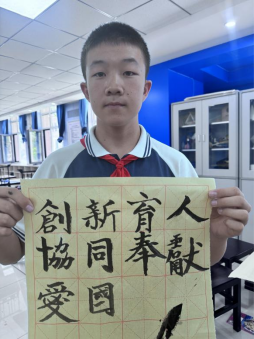 創新育人
協同奉獻
愛國